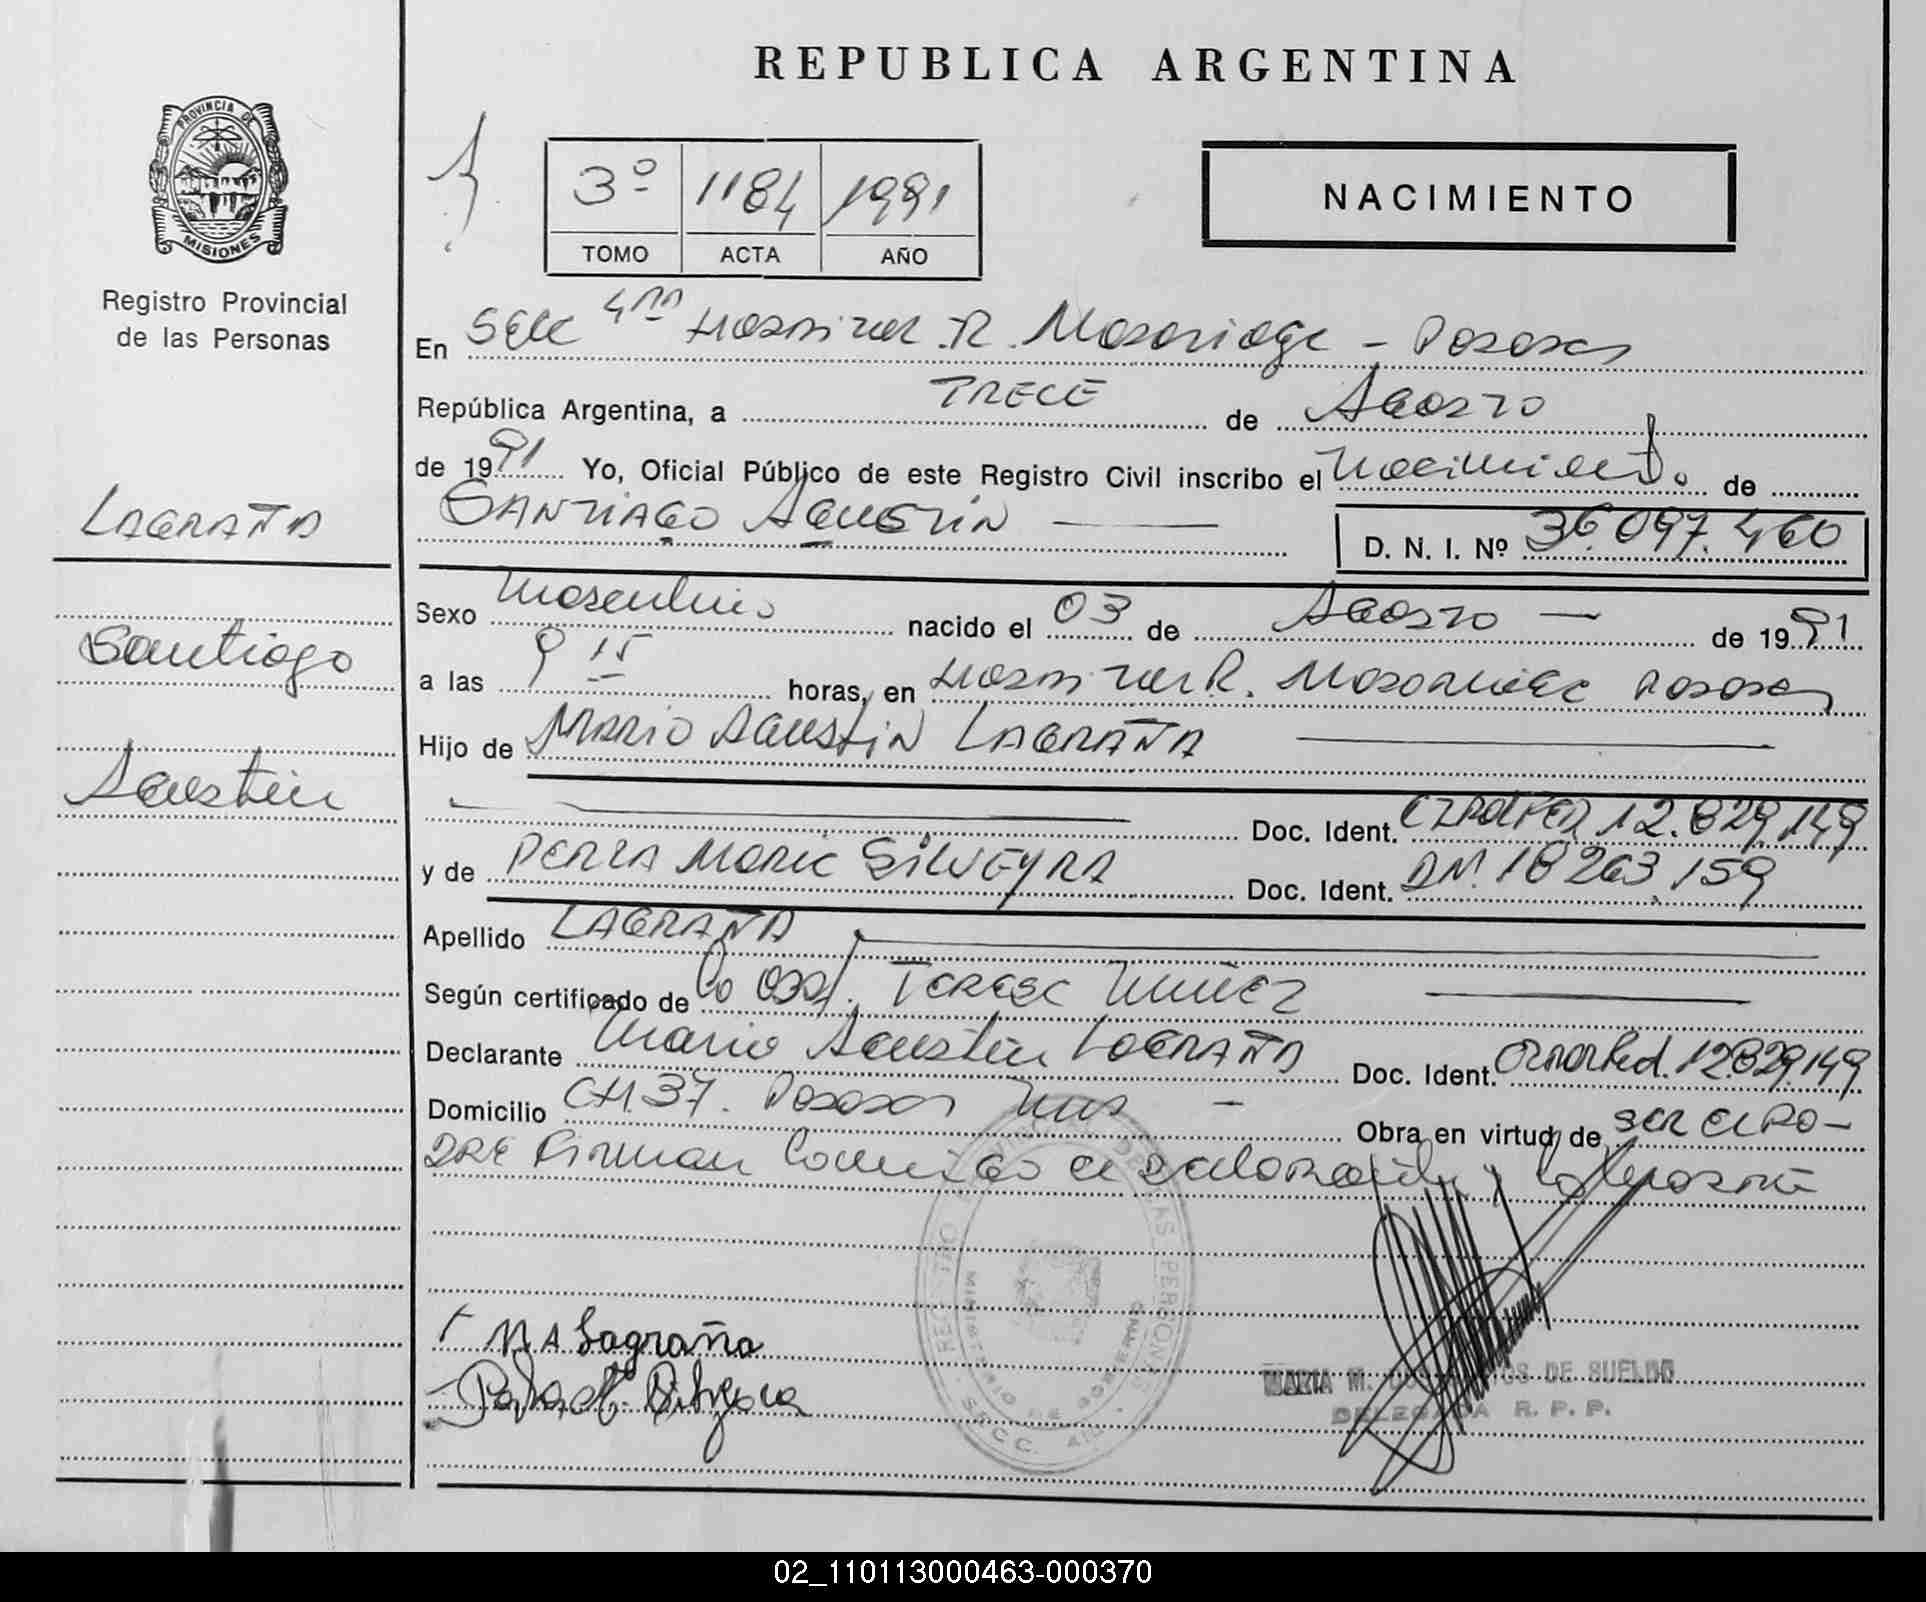 REPUBLICA ARGENTINA
PROVINCIA DE
MISIONES
Registro Provincial
de las Personas
3º 1184 1991
TOMO ACTA AÑO
NACIMIENTO
En Secc 4ta Hospital R. Madariaga - Posadas
República Argentina, a TRECE de Agosto
de 1991 Yo, Oficial Público de este Registro Civil inscribo el Nacimiento de
SANTIAGO AGUSTIN
D. N. I. Nº 36.097.460
LAGRAÑA
Santiago
Agustin
Sexo Masculino nacido el 03 de Agosto de 1991
a las 9 15 horas, en Hospital R. Madariaga Posadas
Hijo de MARIO AGUSTIN LAGRAÑA
Doc. Ident. 12.829.149
y de PERLA MARIA SILVEYRA Doc. Ident. DNI 18263.159
Apellido LAGRAÑA
Según certificado de la Obst. Teresa Nuñez
Declarante Mario Agustin LAGRAÑA Doc. Ident. 12.829.149
Domicilio CH. 37. Posadas Mnes - Obra en virtud de ser el Pa-
dre Firman Conmigo el Declarante y la
M A Lagraña
REGISTRO PROVINCIAL DE LAS PERSONAS
MINISTERIO DE GOBIERNO
SECC. 4ta
MARIA M. DOS SANTOS DE SUELDO
DELEGADA R. P. P.
02_110113000463-000370